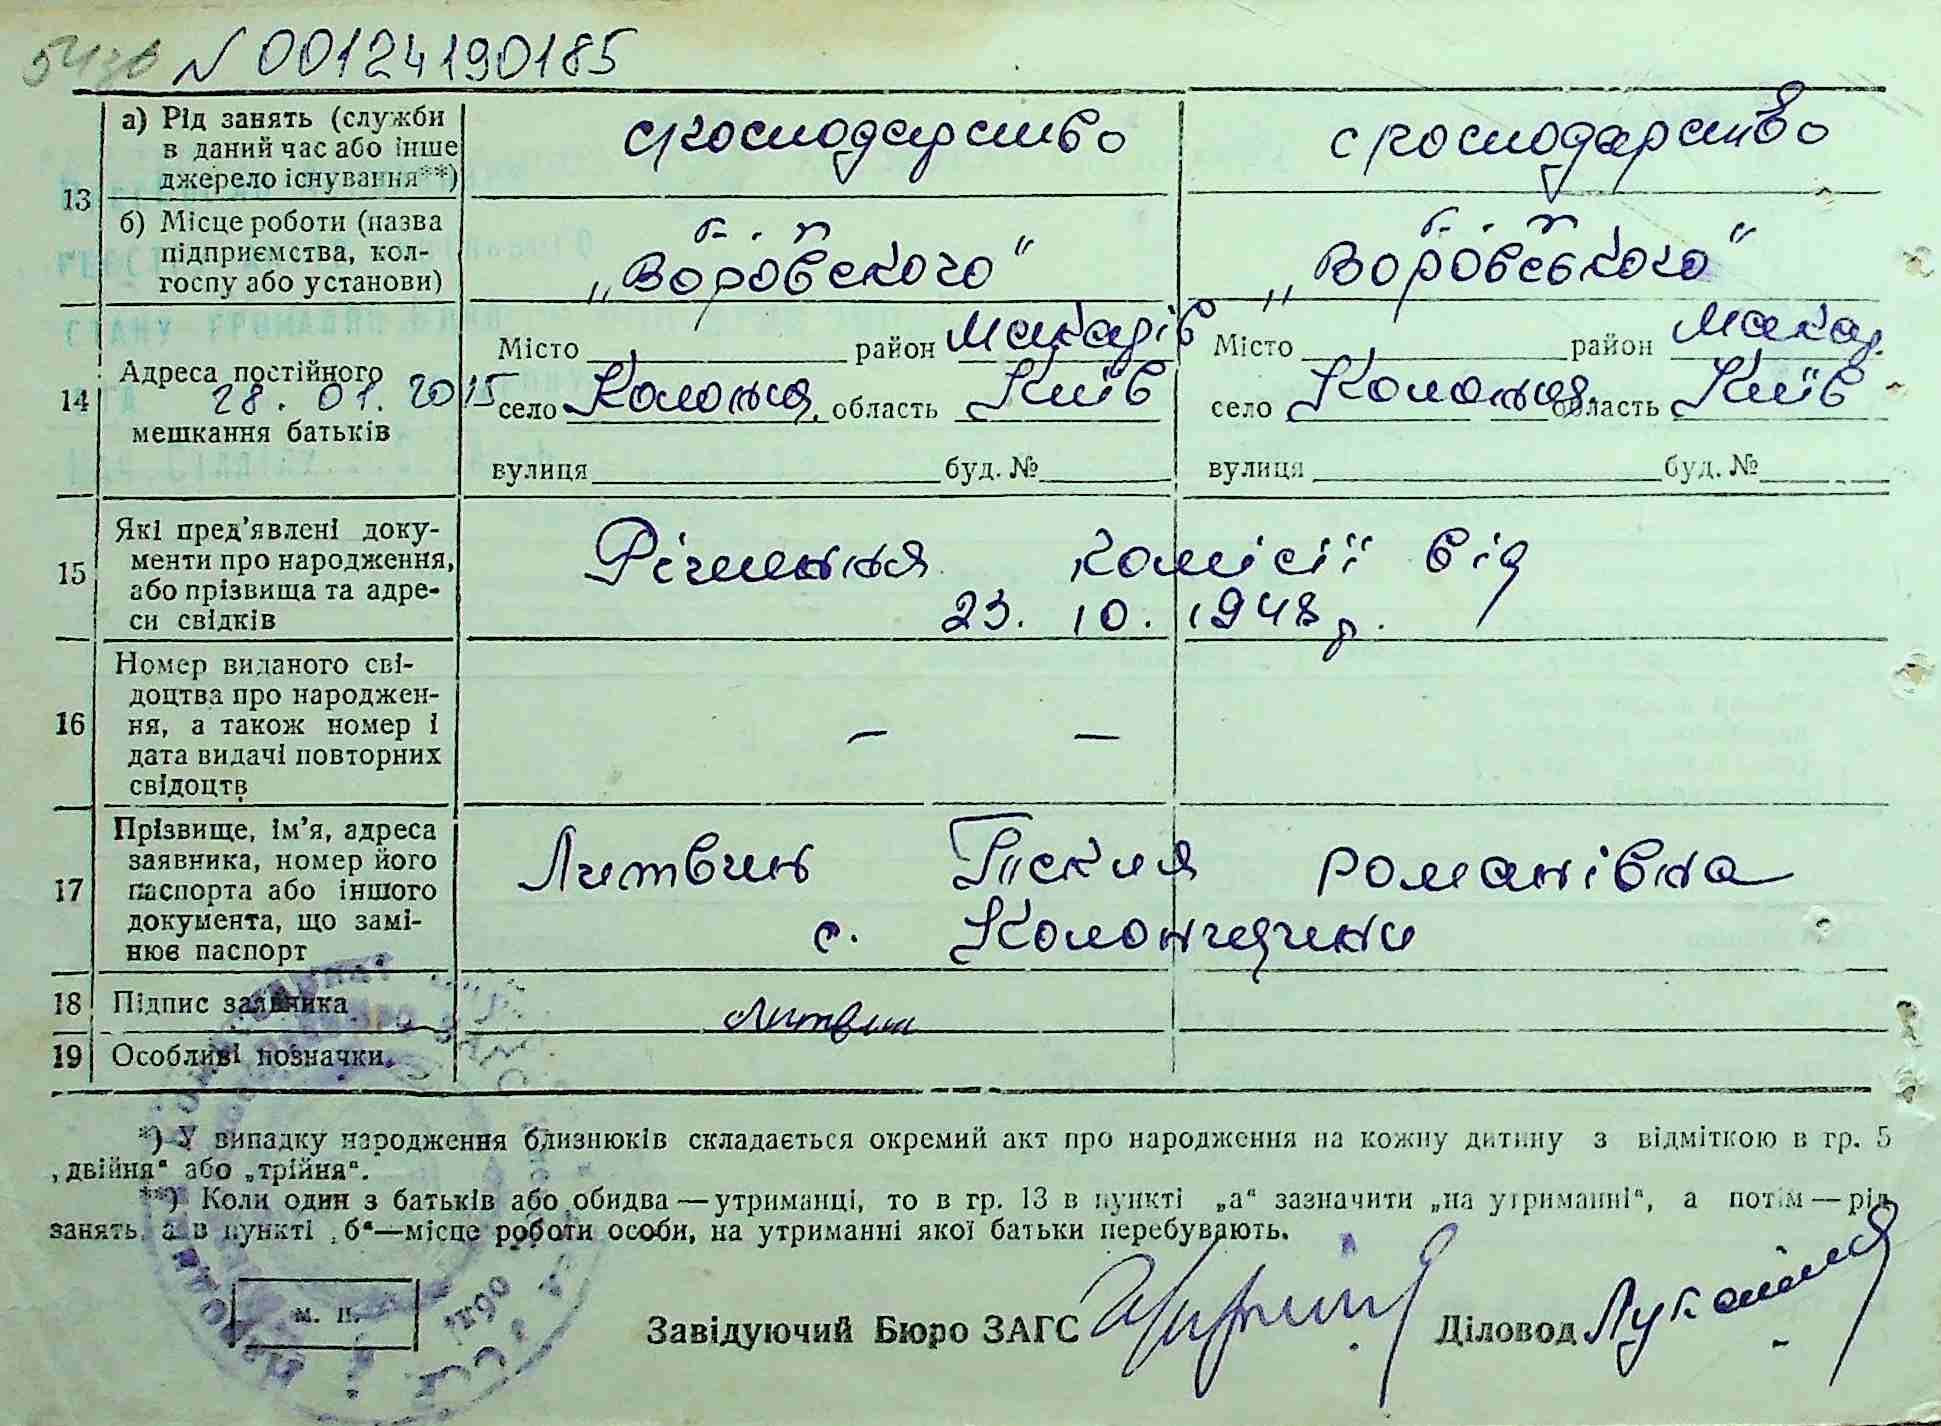 N 00124190185
13
а) Рід занять (служби
в даний час або інше
джерело існування**)
с/господарство
с/господарство
б) Місце роботи (назва
підприємства, кол-
госпу або установи)
б. п
„Воровского“
б. п
„Воровського“
14
Адреса постійного
28. 01. 2015
мешкання батьків
Місто район Макарів
село Колонщ. область Київ
вулиця буд. №
Місто район Макар.
село Колонщ. область Київ
вулиця буд. №
15
Які пред’явлені доку-
менти про народження,
або прізвища та адре-
си свідків
Рішення комісії від
23. 10. 1948 р.
16
Номер виданого сві-
доцтва про народжен-
ня, а також номер і
дата видачі повторних
свідоцтв
— —
17
Прізвище, ім’я, адреса
заявника, номер його
паспорта або іншого
документа, що замі-
нює паспорт
Литвин романівна
с. Колонщини
18
Підпис заявника
Литвин
19
Особливі позначки.
*) У випадку народження близнюків складається окремий акт про народження на кожну дитину з відміткою в гр. 5
„двійня“ або „трійня“.
**) Коли один з батьків або обидва — утриманці, то в гр. 13 в пункті „а“ зазначити „на утриманні“, а потім — рід
занять, а в пункті „б“—місце роботи особи, на утриманні якої батьки перебувають.
м. п.
Завідуючий Бюро ЗАГС
Діловод